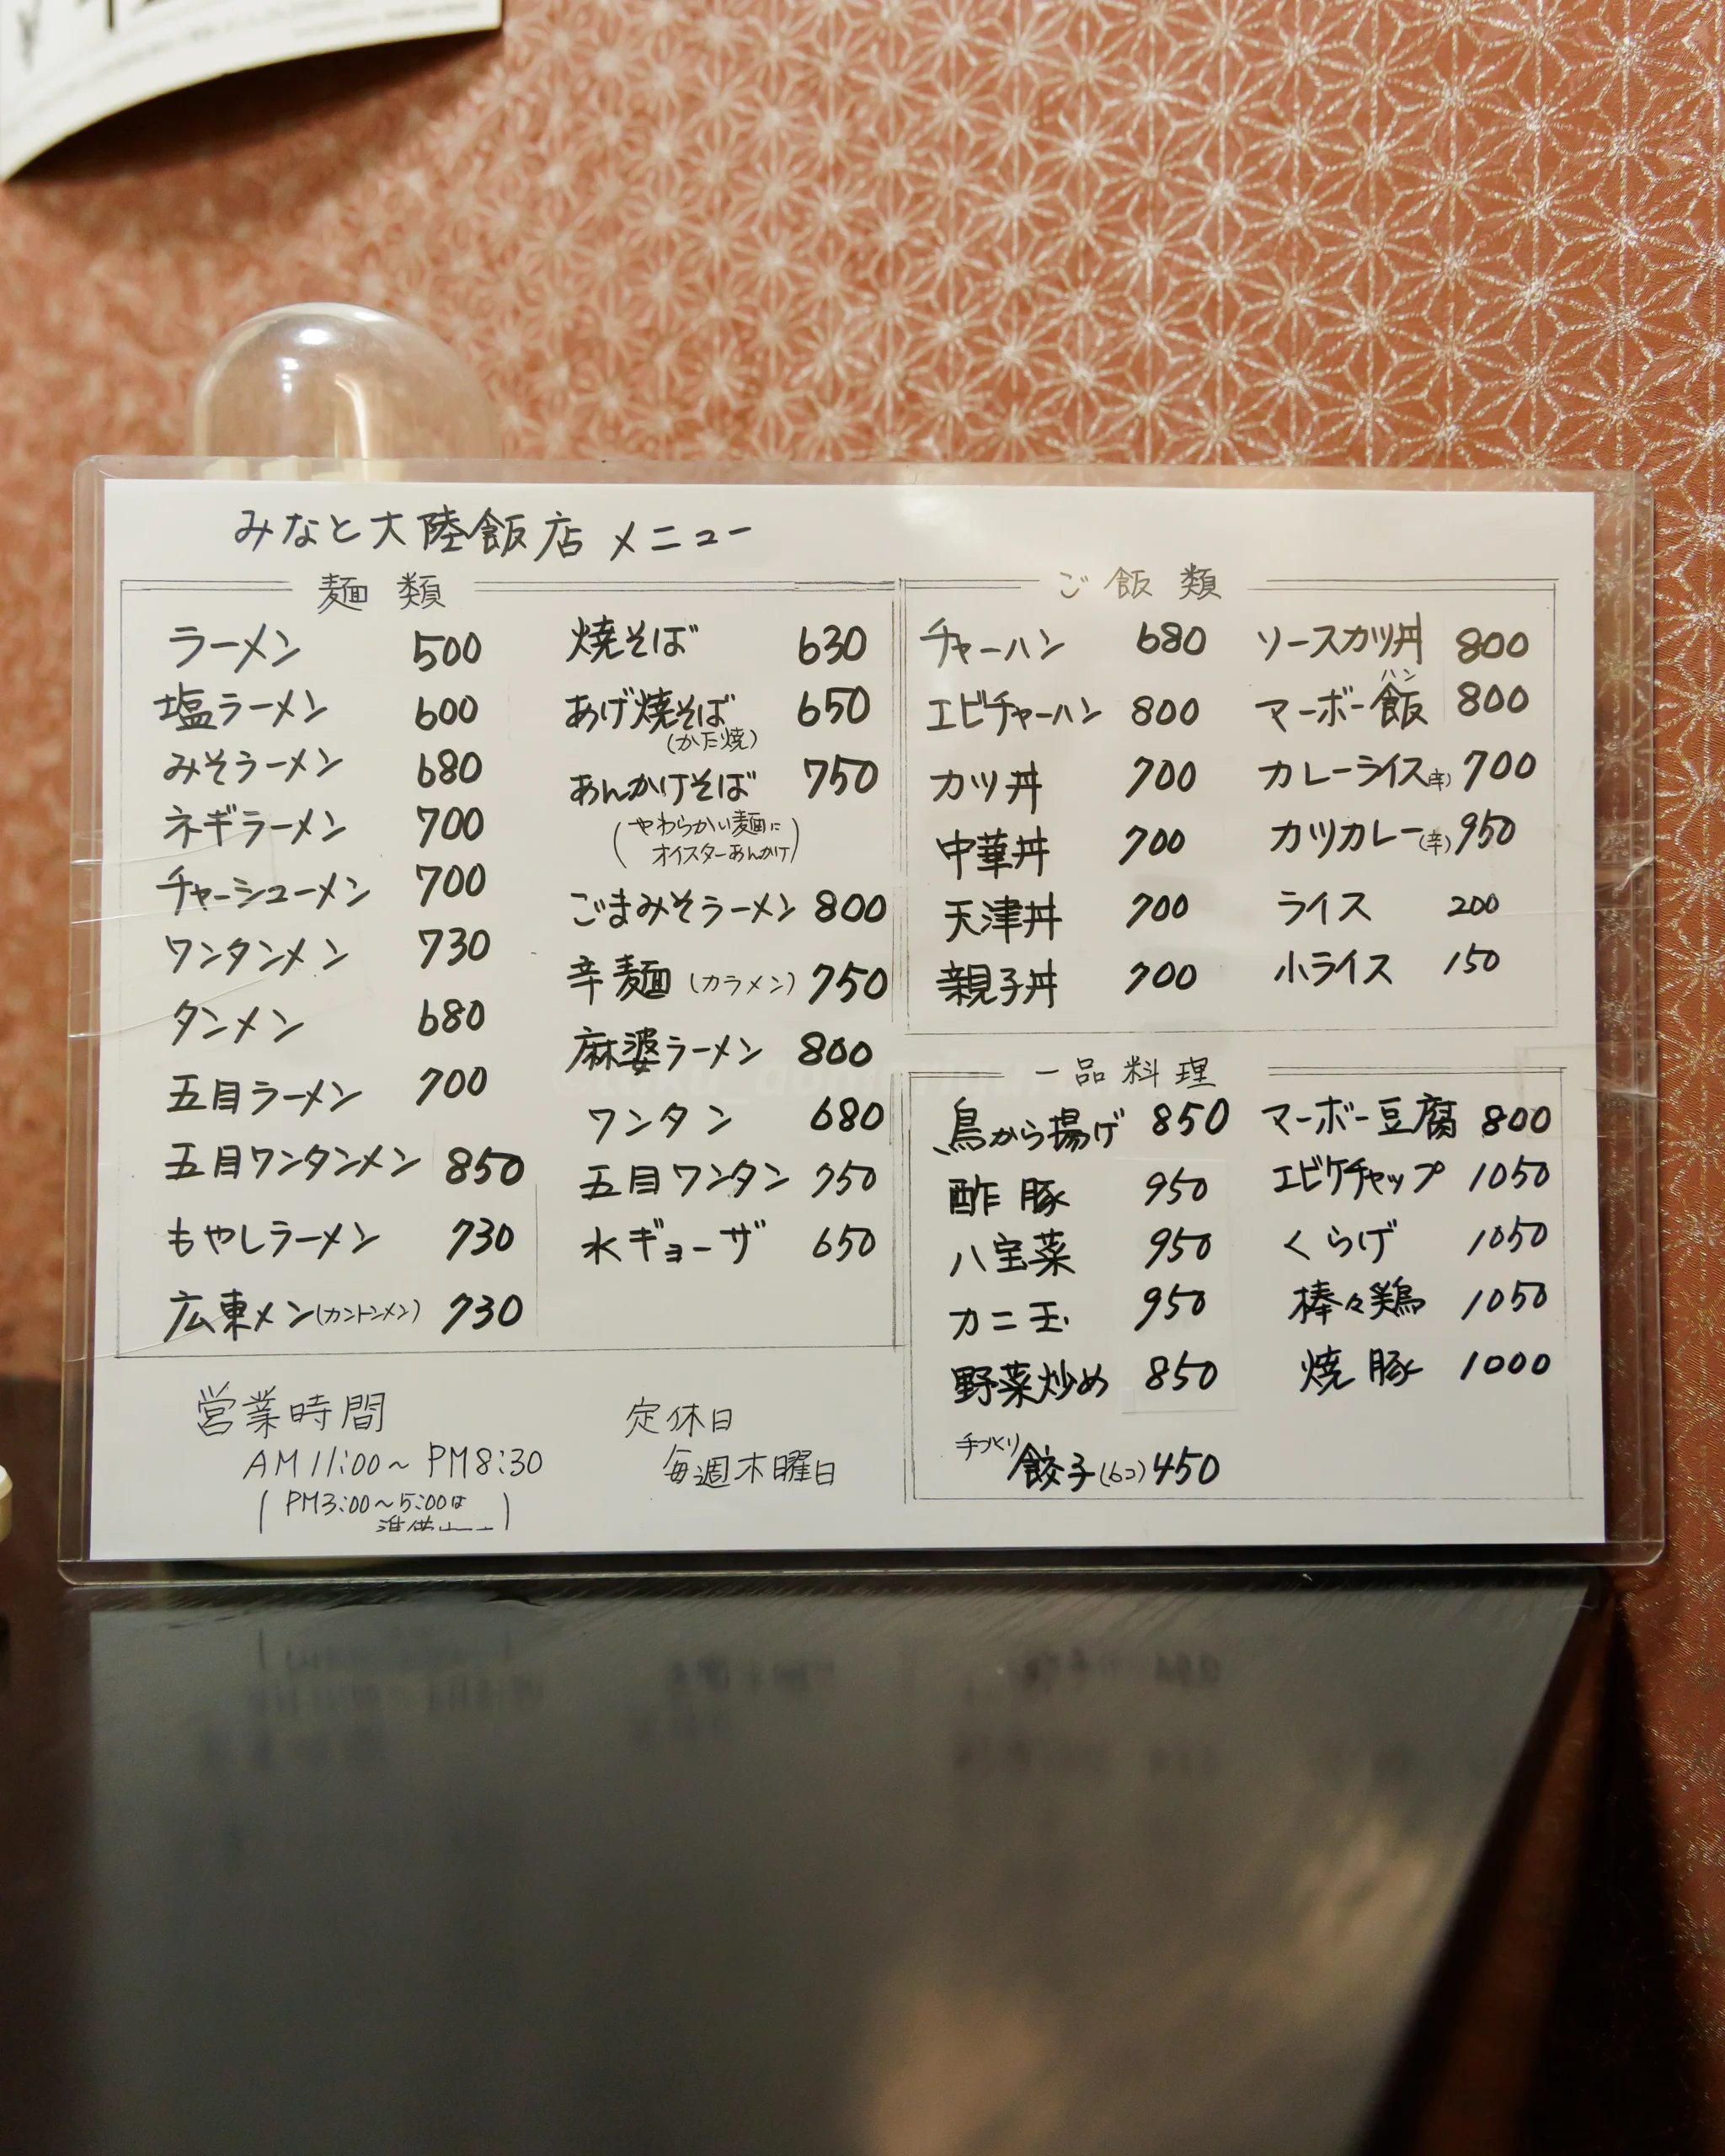 みなと大陸飯店 メニュー
麺類
ラーメン 500
塩ラーメン 600
みそラーメン 680
ネギラーメン 700
チャーシューメン 700
ワンタンメン 730
タンメン 680
五目ラーメン 700
五目ワンタンメン 850
もやしラーメン 730
広東メン(カントンメン) 730
焼そば 630
あげ焼そば 650
(かた焼)
あんかけそば 750
(やわらかい麺に
オイスターあんかけ)
ごまみそラーメン 800
辛麺(カラメン) 750
麻婆ラーメン 800
ワンタン 680
五目ワンタン 750
水ギョーザ 650
ご飯類
チャーハン 680
エビチャーハン 800
カツ丼 700
中華丼 700
天津丼 700
親子丼 700
ソースカツ丼 800
ハン
マーボー飯 800
カレーライス(辛) 700
カツカレー(辛) 950
ライス 200
小ライス 150
一品料理
鳥から揚げ 850
酢豚 950
八宝菜 950
カニ玉 950
野菜炒め 850
手づくり餃子(6コ) 450
マーボー豆腐 800
エビケチャップ 1050
くらげ 1050
棒々鶏 1050
焼豚 1000
営業時間
AM11:00~PM8:30
(PM3:00~5:00は
定休日
毎週木曜日